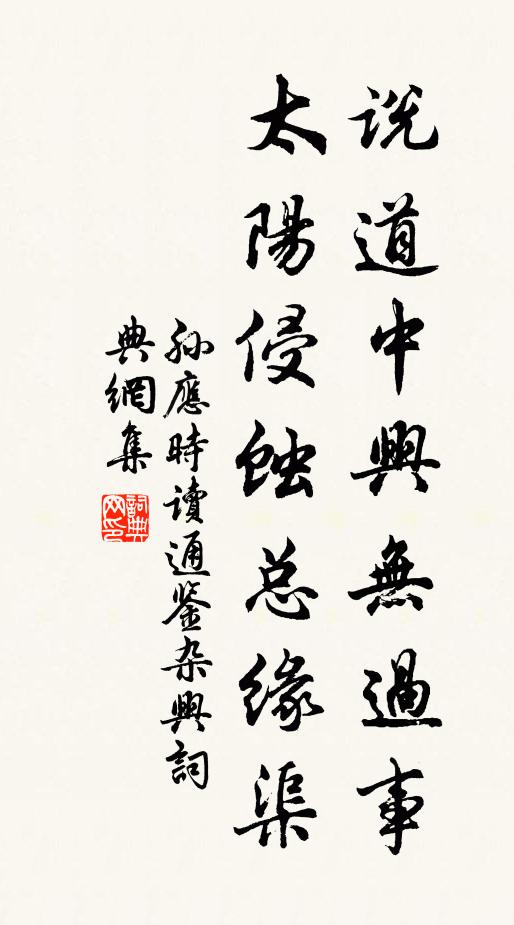 説道中興無過事
太陽侵蝕总緣渠
孙應時讀通鉴杂興詞
典網集
詞典網印